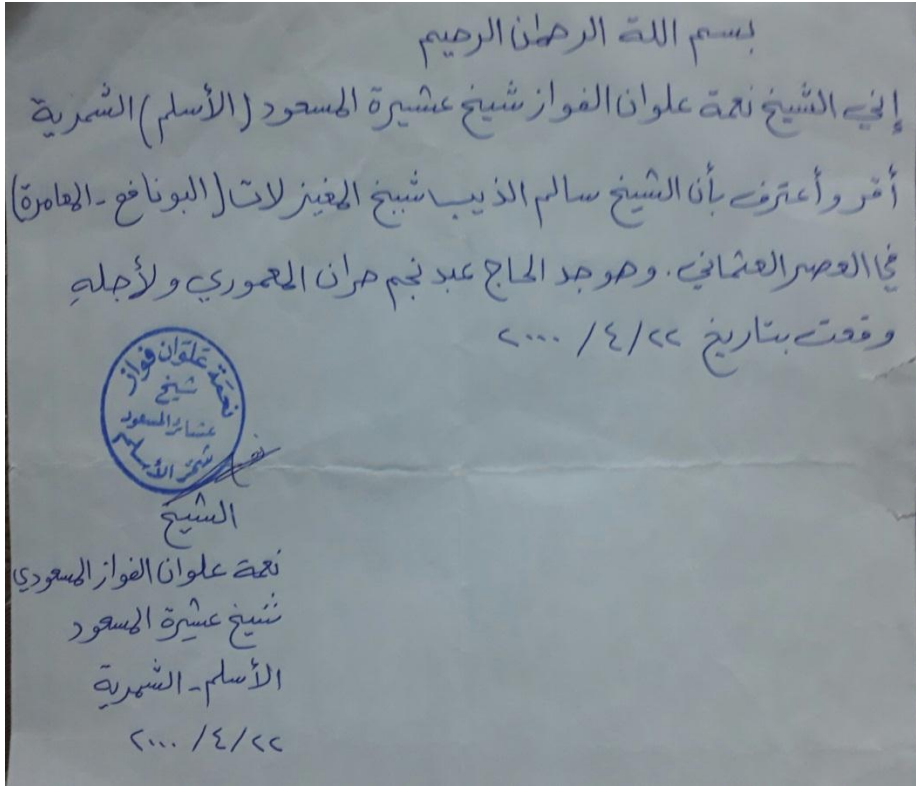 بسم اللة الرحمان الرحيم
إني الشيخ نعمة علوان الفواز شيخ عشيرة المسعود (الأسلم) الشمرية
أقر وأعترف بأن الشيخ سالم الذيب شيخ المغيزلات (البونافع - المعامرة)
في العصر العثماني. وهو جد الحاج عبد نجم حران المعموري ولأجله
وقعت بتاريخ ٢٢/٤/٢٠٠٠
نعمة علوان فواز
شيخ
عشائر المسعود
شمر الأسلم
الشيخ
نعمة علوان الفواز المسعودي
شيخ عشيرة المسعود
الأسلم - الشمرية
٢٢/٤/٢٠٠٠